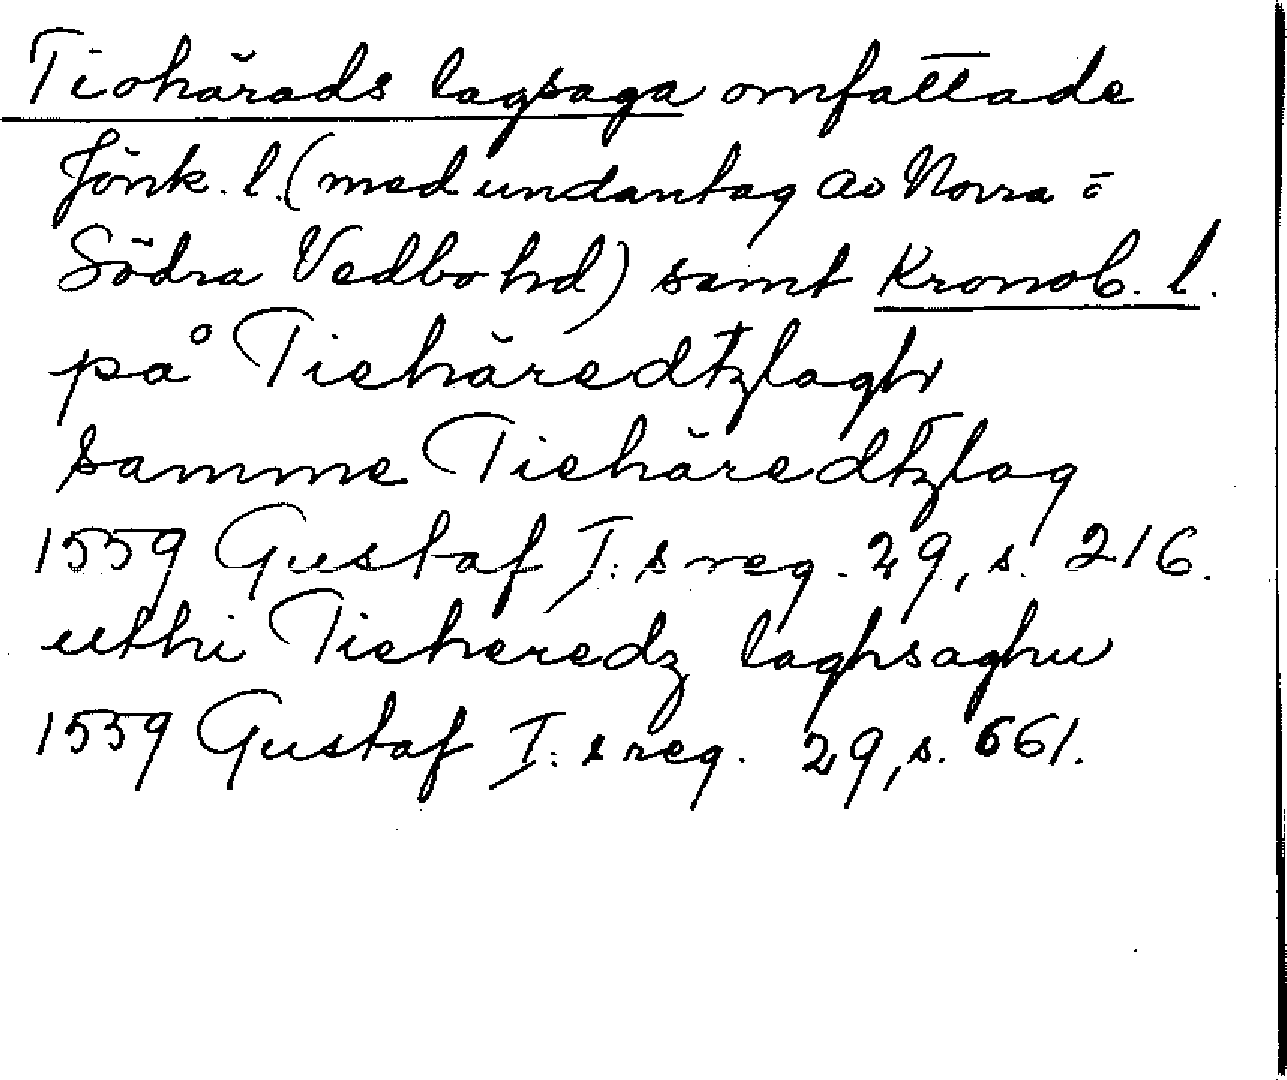 Tiohärads lagsaga omfattade
Jönk. l. (med undantag av Norra o
Södra Vedbo hd) samt Kronob. l.
på Tiehäredtzlagh
samme Tiehäredtzlag
1559 Gustaf I:s reg. 29, s. 216.
uthi Tieheredz laghsaghu
1559 Gustaf I:s reg. 29, s. 661.